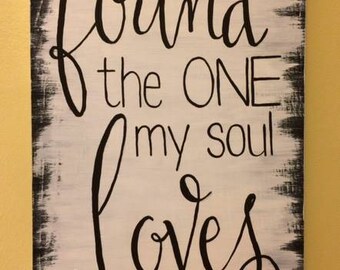 found
the ONE
my soul
loves